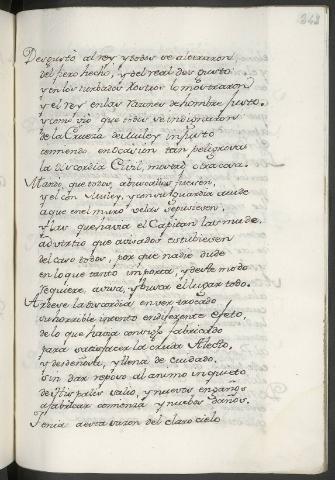 343
Desgustó al rey y todos se alteraron
del fiero hecho, y del real disgusto
y en los turbados Rostros lo mostraron
y el rey en las razones de hombre justo.
y como vio que todos se indignaron
de la Crueza de Muley injusto
temiendo en ocasion tan peligrosa
la discordia Civil, movió otra cosa.
Mandó que todos, a buscallos fuesen,
y el con Muley, y con su guardia acude
a que en el muro velas se pusiesen,
y las que havia el Capitan las mude,
advirtio que avisados estubiesen
del caso todos, por que nadie dude
en lo que tanto importa, y deste modo
requiere, avisa, y busca el lugar todo.
Ardese la discordia en ver trocado
su horrible intento en diferente efeto,
de lo que havia consigo fabricado
para satisfacer la dañada
y desdeñosa, y llena de cuidado,
sin dar reposo al animo inquieto
destos palacios salio, y nuevos engaños
a fabricar comienza y nuebos daños.
Tenia a esta sazon del claro cielo